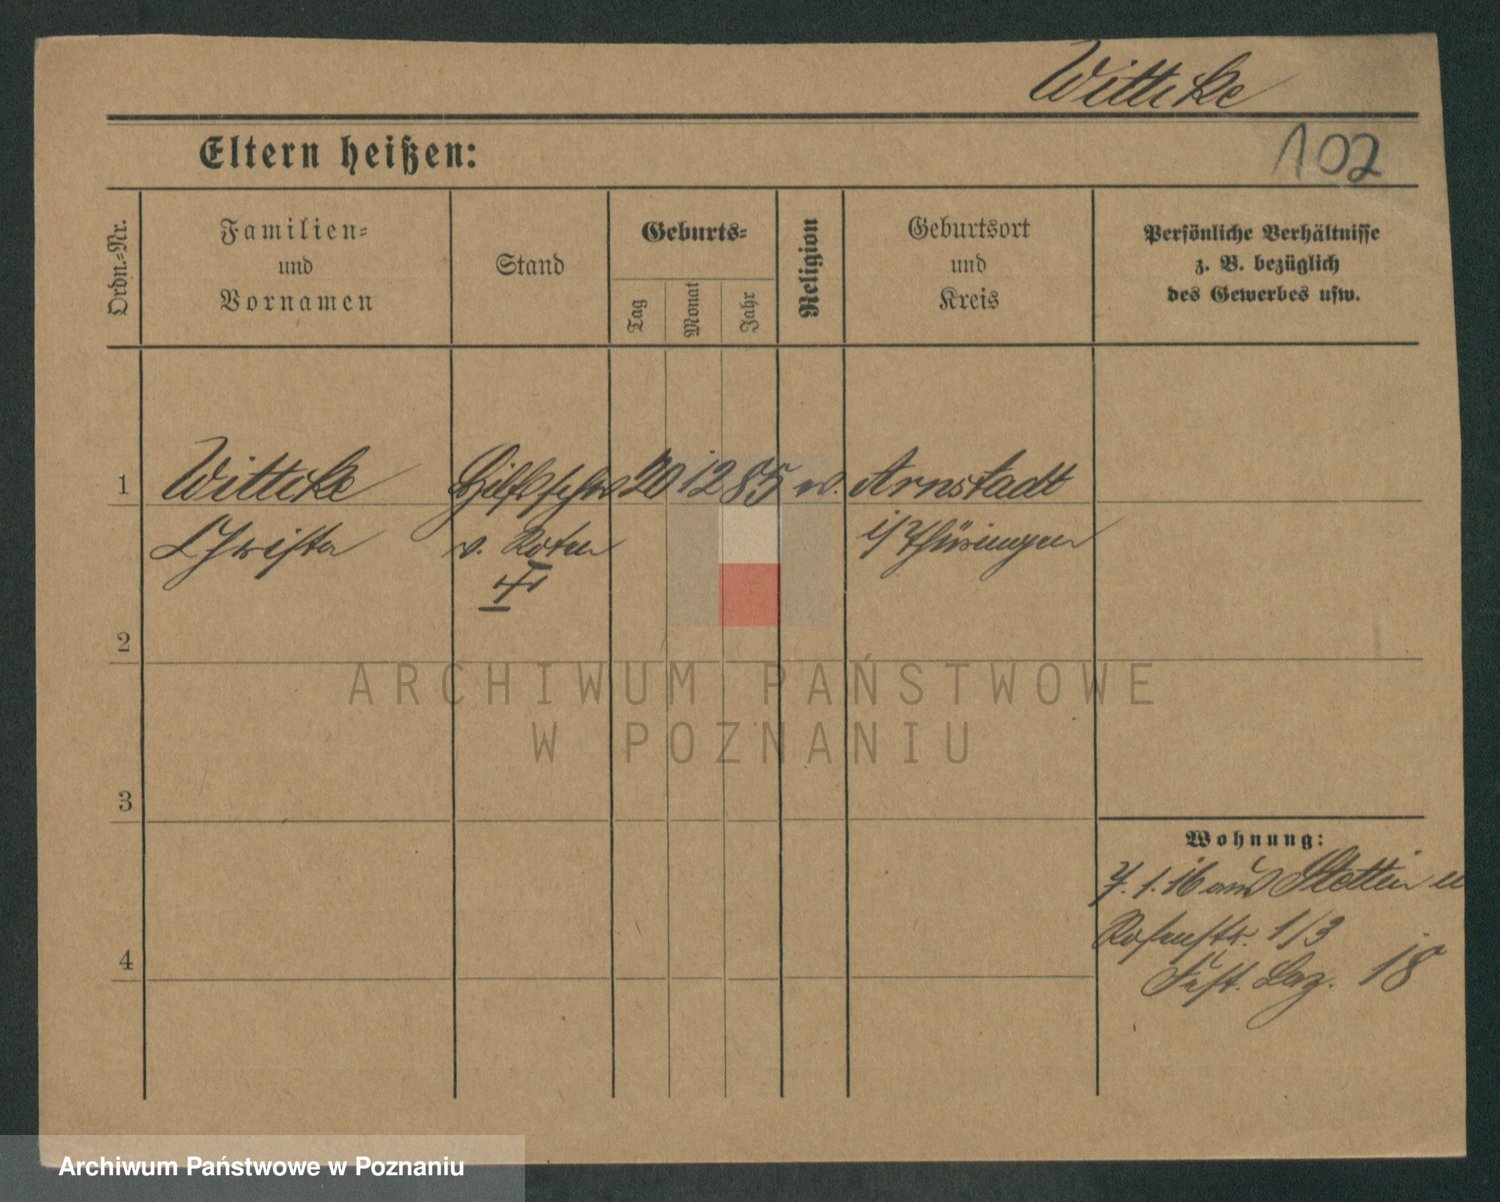 Wittcke
102
Eltern heißen:
Ordn.-Nr.
Familien-
und
Vornamen
Stand
Geburts-
Tag
Monat
Jahr
Religion
Geburtsort
und
Kreis
Persönliche Verhältnisse
z. B. bezüglich
des Gewerbes usw.
1 Wittcke 20 12 85 Arnstadt
Christa v. Roten i/Thüringen
2
3
4
Wohnung:
7.1.16 aus Stettin
Rosenstr. 1/3
Fest. Laz. 18
ARCHIWUM PAŃSTWOWE
W POZNANIU
Archiwum Państwowe w Poznaniu